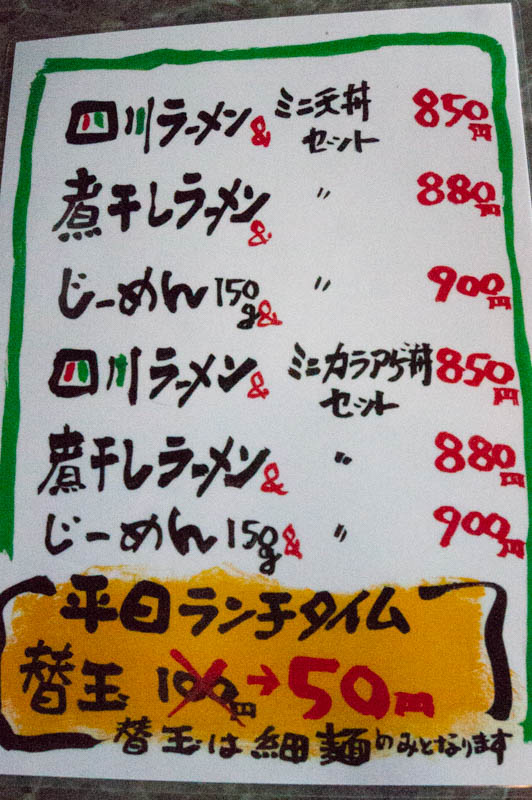 四川ラーメン& ミニ天丼セット 850円
煮干しラーメン& 〃 880円
じーめん150g& 〃 900円
四川ラーメン& ミニカラアゲ丼セット 850円
煮干しラーメン& 〃 880円
じーめん150g& 〃 900円
平日ランチタイム
替玉 100円→50円
替玉は細麺のみとなります